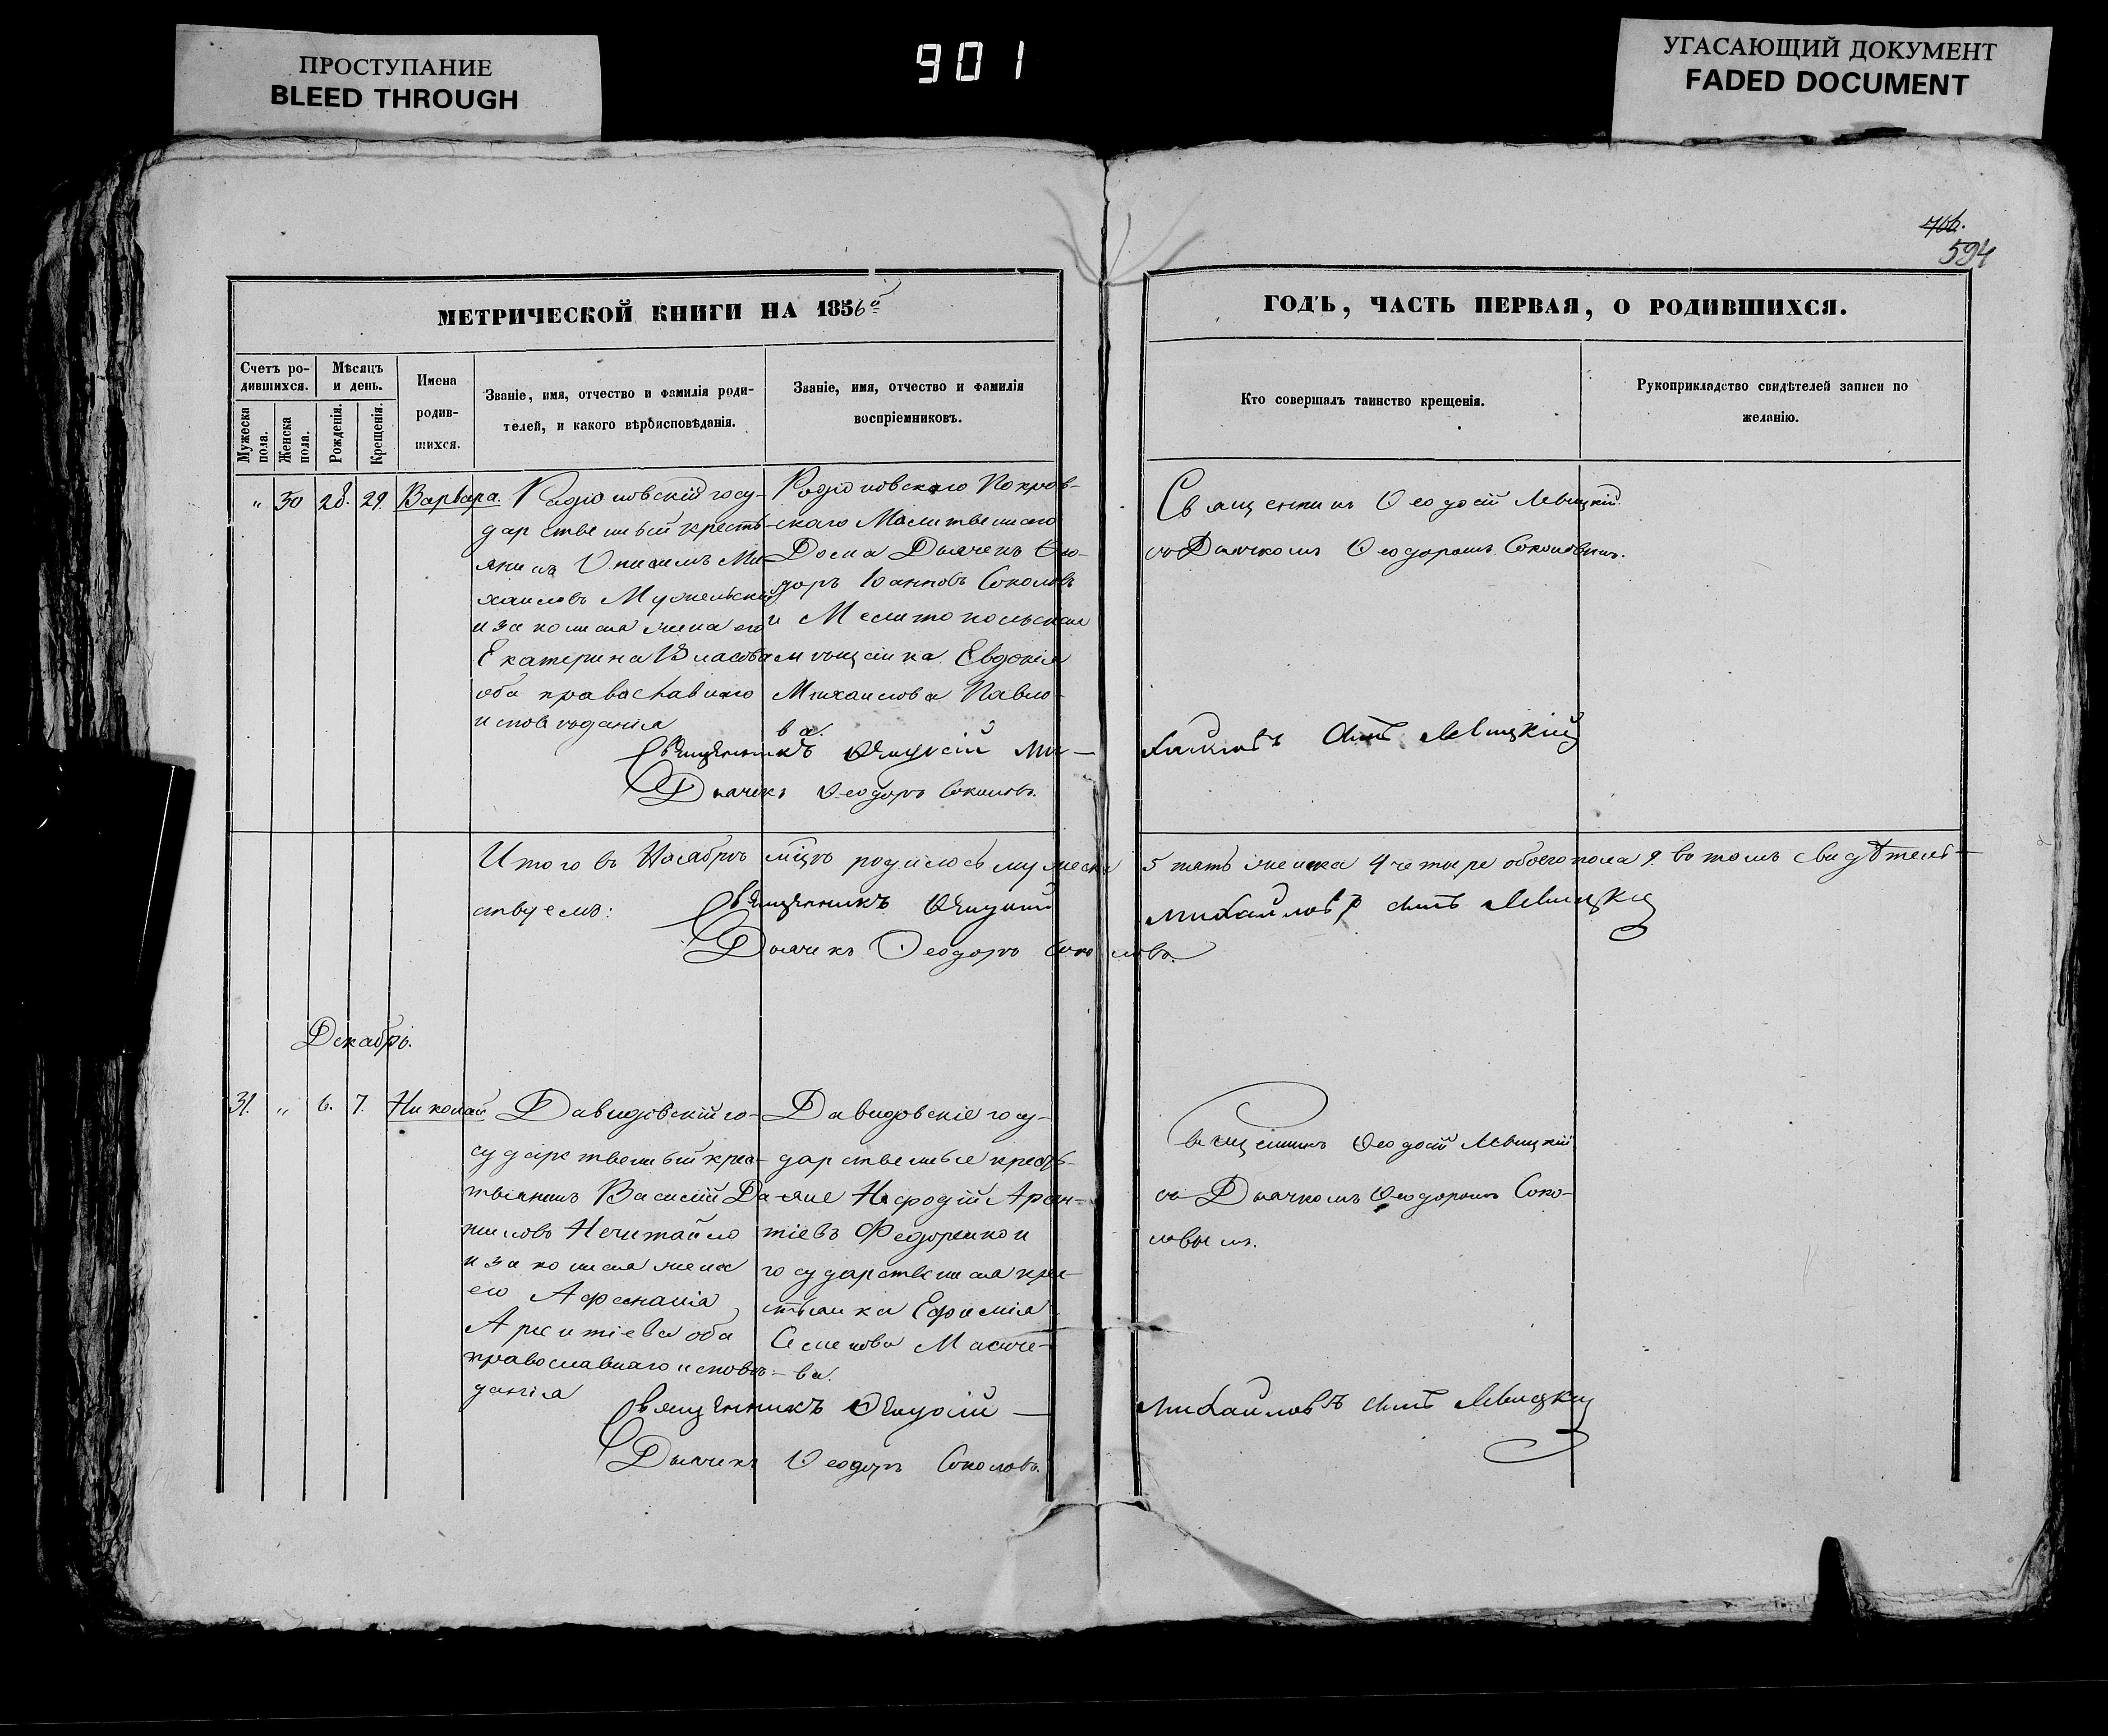 ПРОСТУПАНИЕ
BLEED THROUGH
901
УГАСАЮЩИЙ ДОКУМЕНТ
FADED DOCUMENT
706.
594
МЕТРИЧЕСКОЙ КНИГИ НА 1856й
ГОДЪ, ЧАСТЬ ПЕРВАЯ, О РОДИВШИХСЯ.
Счетъ ро-
дившихся.
Мѣсяцъ
и день.
Мужеска
пола.
Женска
пола.
Рожденія.
Крещенія.
Имена
родив-
шихся.
Званіе, имя, отчество и фамилія роди-
телей, и какого вѣроисповѣданія.
Званіе, имя, отчество и фамилія
воспріемниковъ.
Кто совершалъ таинство крещенія.
Рукоприкладство свидѣтелей записи по
желанію.
" 30 28. 29. Варвара.
Радіоновскій госу-
дарственный кресть-
янинъ Ми-
хаиловъ
и законная жена его
Екатерина Власова
оба православнаго
исповѣданія
Радіоновскаго Покров-
скаго Молитвеннаго
Дома Дьячекъ Ѳео-
доръ Іоанновъ Соколовъ
и Мелитопольская
мѣщанка Евдокія
Михаилова Павло-
ва.
Священникъ Ѳеодосій Левицкій
съ Дьячкомъ Ѳеодоромъ Соколовымъ.
Священникъ Ѳеодосій Ми-
хаиловъ сынъ Левицкій
Дьячекъ Ѳеодоръ Соколовъ.
Итого въ Ноябрѣ мцѣ родилось мужеска 5 пять женска 4 четыре обоего пола 9. въ томъ свидѣтель-
ствуемъ:
Священникъ Ѳеодосій Михаиловъ сынъ Левицкій
Дьячекъ Ѳеодоръ Соколовъ.
Декабрь.
31. " 6. 7. Николай
Давидовскій го-
сударственный крес-
тьянинъ Василій Да-
ниловъ Нечитайло
и законная жена
его Афанасія
оба
православнаго исповѣ-
данія
Давидовскіе госу-
дарственные кресть-
яне
тіевъ Федоренко и
государственная кре-
стьянка Ефимія
Семенова
ва.
Священникъ Ѳеодосій Левицкій
съ Дьячкомъ Ѳеодоромъ Соко-
ловымъ.
Священникъ Ѳеодосій —
Михаиловъ сынъ Левицкій
Дьячекъ Ѳеодоръ Соколовъ.